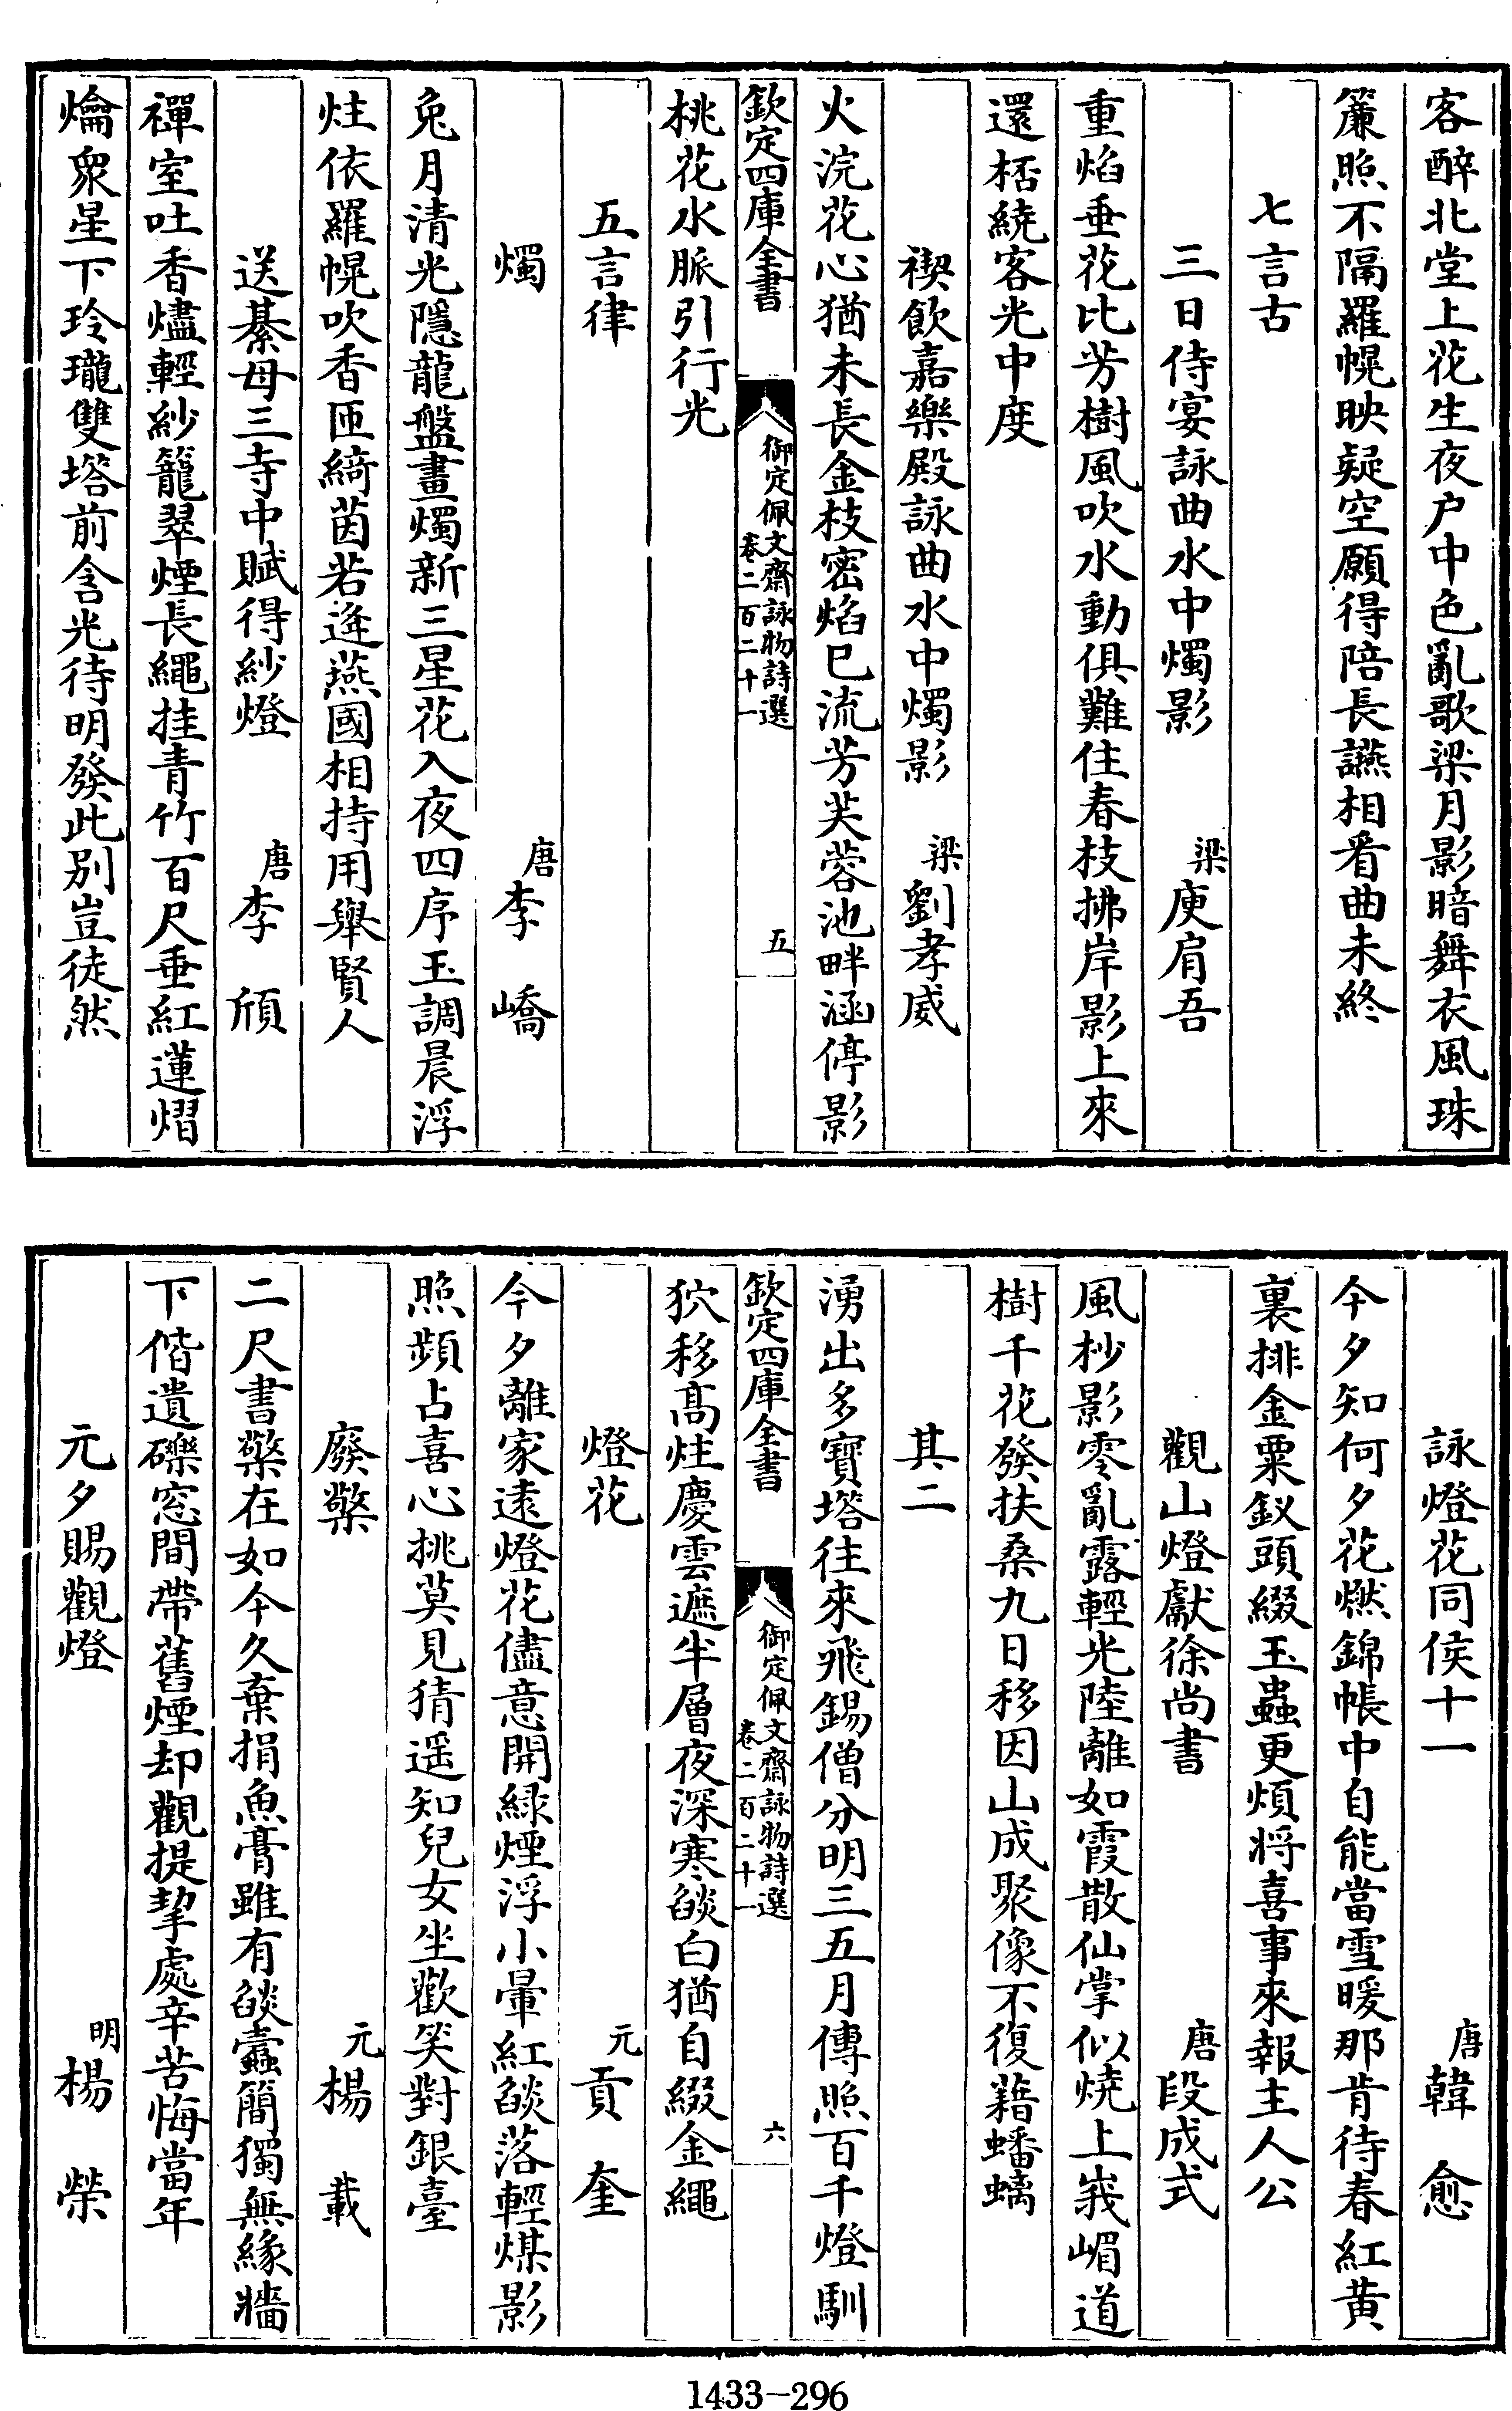 客醉北堂上花生夜户中色亂歌梁月影暗舞衣風珠
簾照不隔羅幌映疑空願得陪長讌相看曲未終
七言古
三日侍宴詠曲水中燭影　梁庾肩吾
重焰垂花比芳樹風吹水動俱難住春枝拂岸影上來
還桮繞客光中度
禊飲嘉樂殿詠曲水中燭影　梁劉孝威
火浣花心猶未長金枝密焰已流芳芙蓉池畔涵停影
桃花水脈引行光
欽定四庫全書　御定佩文齋詠物詩選　卷二百二十一　五
五言律
燭　唐李嶠
兔月清光隱龍盤畫燭新三星花入夜四序玉調晨浮
炷依羅幌吹香匝綺茵若逢燕國相持用舉賢人
送綦母三寺中賦得紗燈　唐李頎
禪室吐香燼輕紗籠翠煙長繩挂青竹百尺垂紅蓮熠
爚衆星下玲瓏雙塔前含光待明發此別豈徒然
詠燈花同侯十一　唐韓愈
今夕知何夕花燃錦帳中自能當雪暖那肯待春紅黄
裏排金粟釵頭綴玉蟲更煩將喜事來報主人公
觀山燈獻徐尚書　唐段成式
風杪影零亂露輕光陸離如霞散仙掌似燒上峩嵋道
樹千花發扶桑九日移因山成聚像不復藉蟠螭
其二
湧出多寶塔往來飛錫僧分明三五月傳照百千燈馴
欽定四庫全書　御定佩文齋詠物詩選　卷二百二十一　六
狖移高炷慶雲遮半層夜深寒燄白猶自綴金繩
燈花　元貢奎
今夕離家遠燈花儘意開緑煙浮小暈紅燄落輕煤影
照頻占喜心挑莫見猜遥知兒女坐歡笑對銀臺
廢檠　元楊載
二尺書檠在如今久棄捐魚膏雖有燄蠹簡獨無緣牆
下偕遺礫窓間帶舊煙却觀提挈處辛苦悔當年
元夕賜觀燈　明楊榮
1433-296